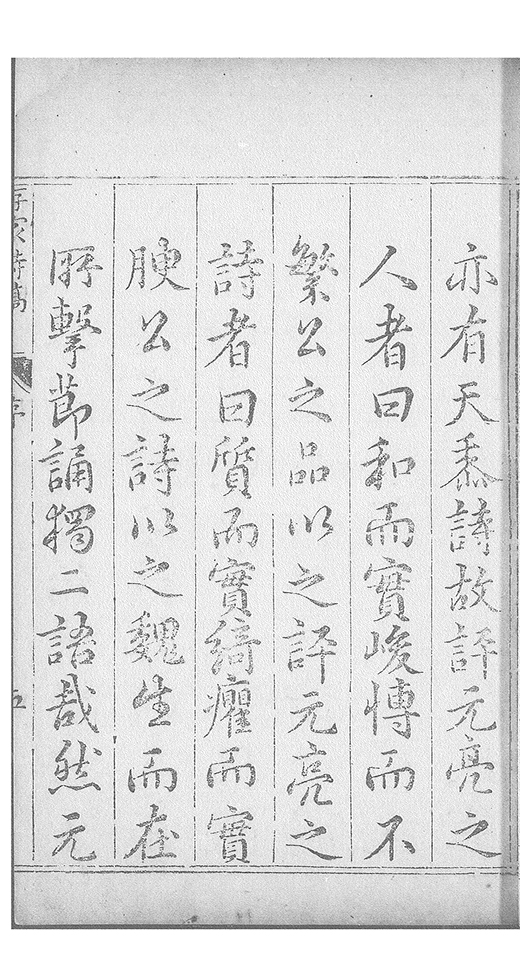 亦有天黍詩故評元亮之
人者曰和而實峻博而不
繁公之品以之評元亮之
詩者曰質而實綺癯而實
腴公之詩以之魏生而在
所擊節誦獨二語哉然元
家詩
序
五